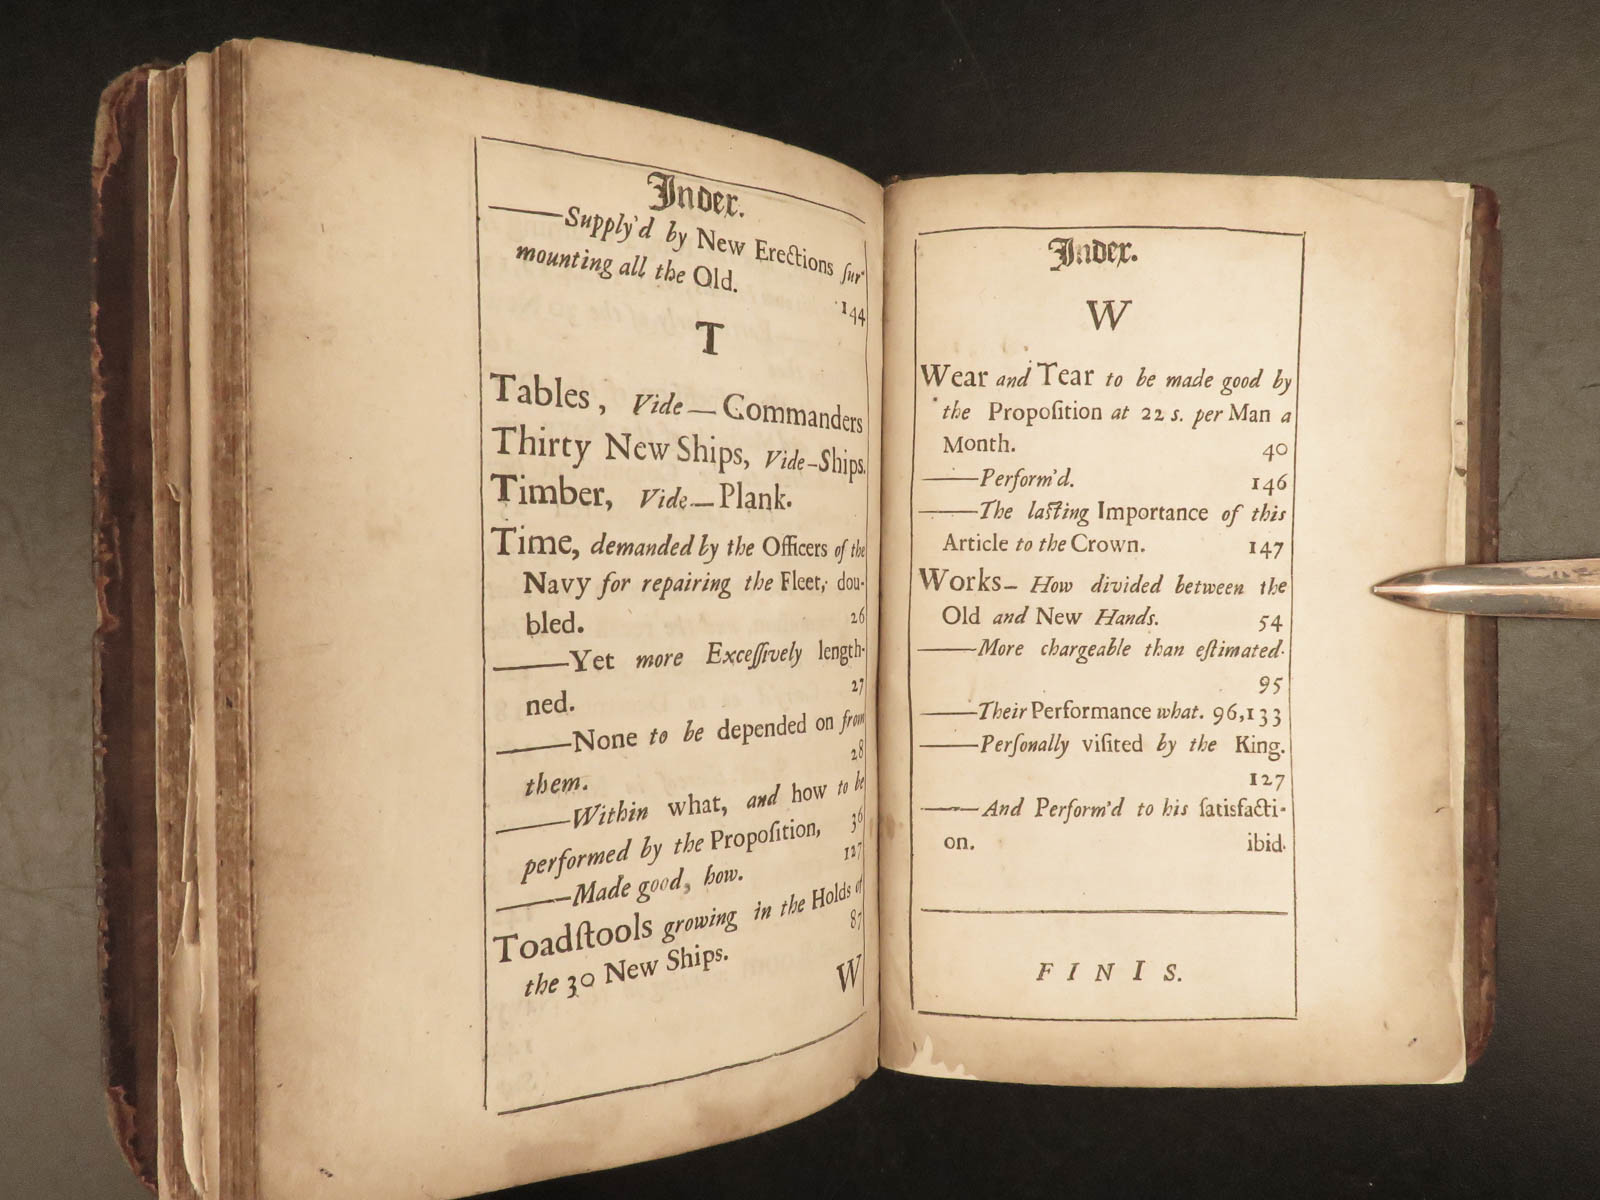 Index.
——Supply'd by New Erections ſur-
mounting all the Old.
144
T
Tables, Vide—Commanders
Thirty New Ships, Vide—Ships.
Timber, Vide—Plank.
Time, demanded by the Officers of the
Navy for repairing the Fleet, dou-
bled. 26
——Yet more Exceſſively length-
ned. 27
——None to be depended on from
them. 28
——Within what, and how to be
performed by the Propoſition, 36
——Made good, how. 127
Toadſtools growing in the Holds of
the 30 New Ships. 87
W
Index.
W
Wear and Tear to be made good by
the Propoſition at 22 s. per Man a
Month. 40
——Perform'd. 146
——The laſting Importance of this
Article to the Crown. 147
Works— How divided between the
Old and New Hands. 54
——More chargeable than eſtimated.
95
——Their Performance what. 96,133
——Perſonally viſited by the King.
127
——And Perform'd to his ſatisfacti-
on. ibid.
FINIS.